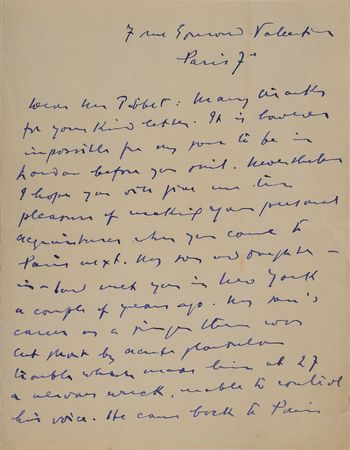 7 rue Edmond Valentin
Paris 7e
Dear Mr Tibbet: Many thanks
for your kind letter. It is however
impossible for my son to be in
London before you sail. Nevertheless
I hope you will give me the
pleasure of making your personal
acquaintance when you come to
Paris next. My son and daughter-
in-law met you in New York
a couple of years ago. My son's
career as a singer there was
cut short by acute glandular
trouble which made him at 27
a nervous wreck, unable to control
his voice. He came back to Paris